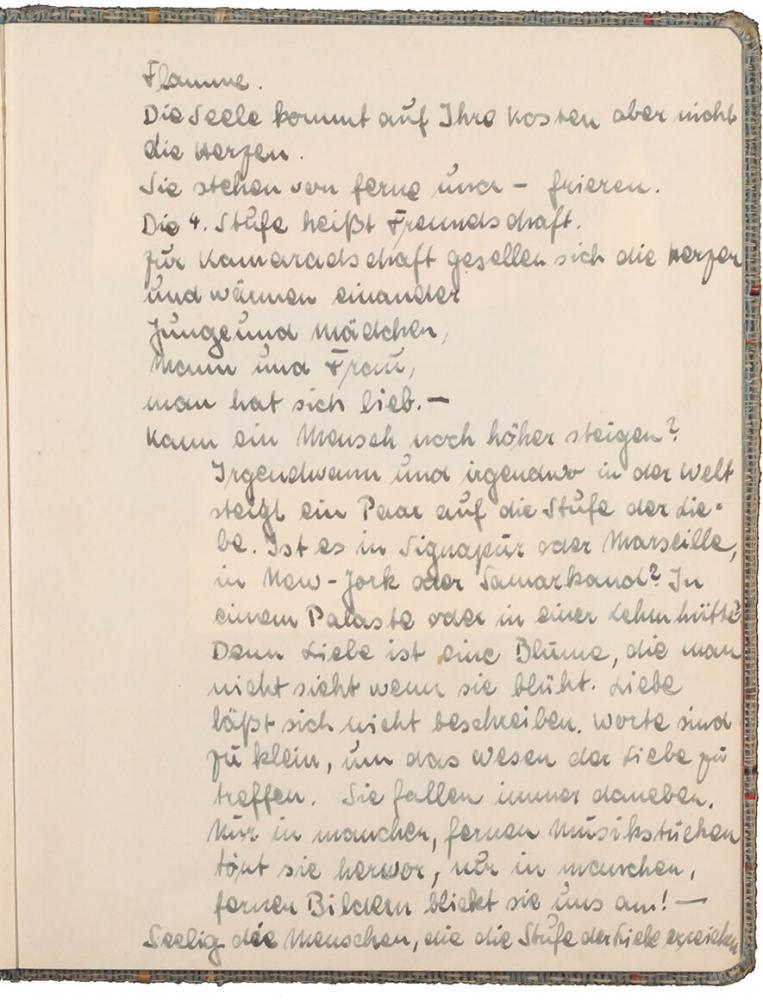 Flamme.
Die Seele kommt auf Ihre Kosten aber nicht
die Herzen.
Sie stehen von ferne und – frieren.
Die 4. Stufe heißt Freundschaft.
Zur Kameradschaft gesellen sich die Herzen
und wärmen einander
Junge und Mädchen,
Mann und Frau,
man hat sich lieb. –
Kann ein Mensch noch höher steigen?
Irgendwann und irgendwo in der Welt
steigt ein Paar auf die Stufe der Lie-
be. Ist es in Signapur oder Marseille,
in New-York oder Samarkand? In
einem Palaste oder in einer Lehmhütte?
Denn Liebe ist eine Blume, die man
nicht sieht wenn sie blüht. Liebe
läßt sich nicht beschreiben. Worte sind
zu klein, um das Wesen der Liebe zu
treffen. Sie fallen immer daneben.
Nur in manchen, fernen Musikstücken
tönt sie hervor, nur in manchen,
fernen Bildern blickt sie uns an! –
Seelig die Menschen, die die Stufe der Liebe erreichen